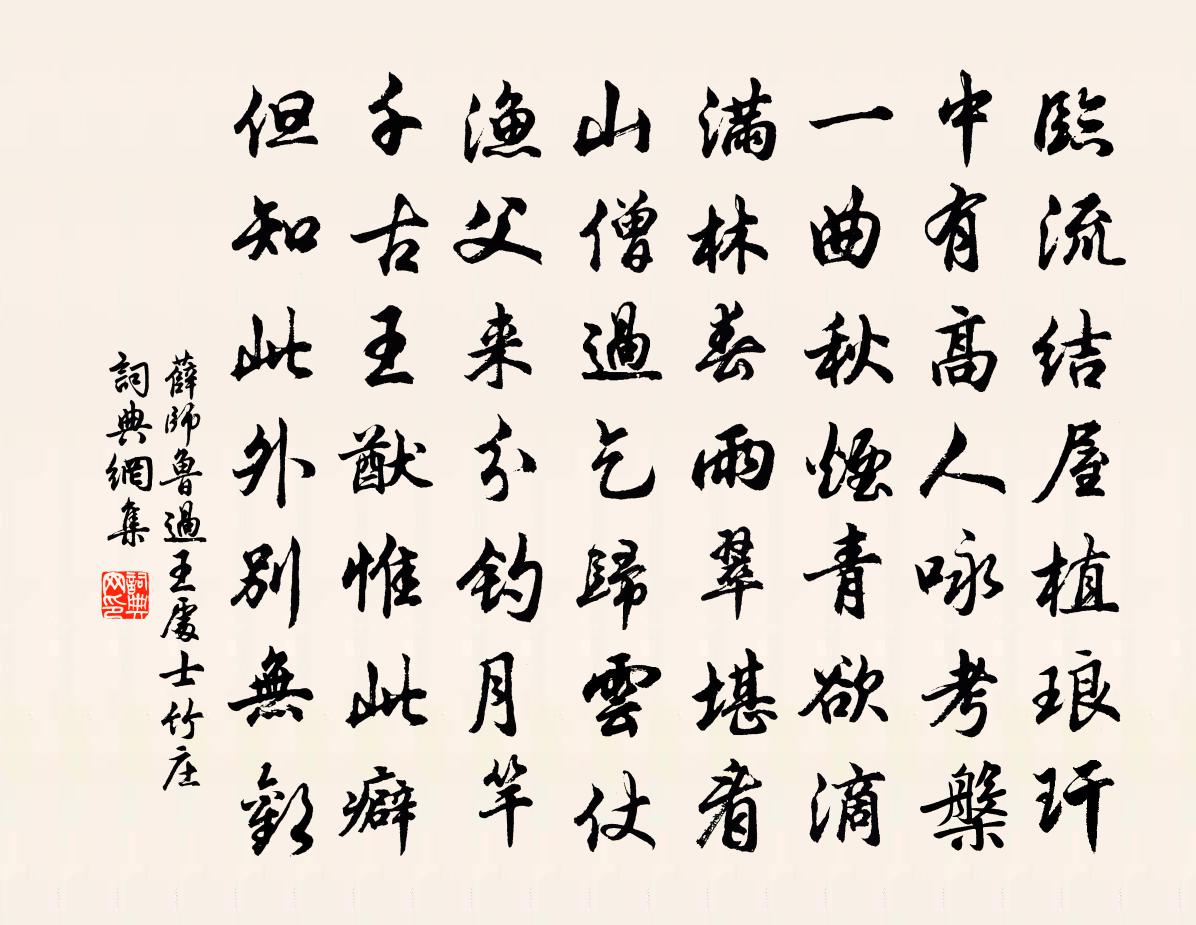 臨流结屋植琅玕
中有高人咏考槃
一曲秋煙青欲滴
滿林春雨翠堪看
山僧過乞歸雲仗
漁父来分钓月竿
千古王猷惟此癖
但知此外别無歡
薛師魯過王處士竹庄
詞典網集
詞典网印